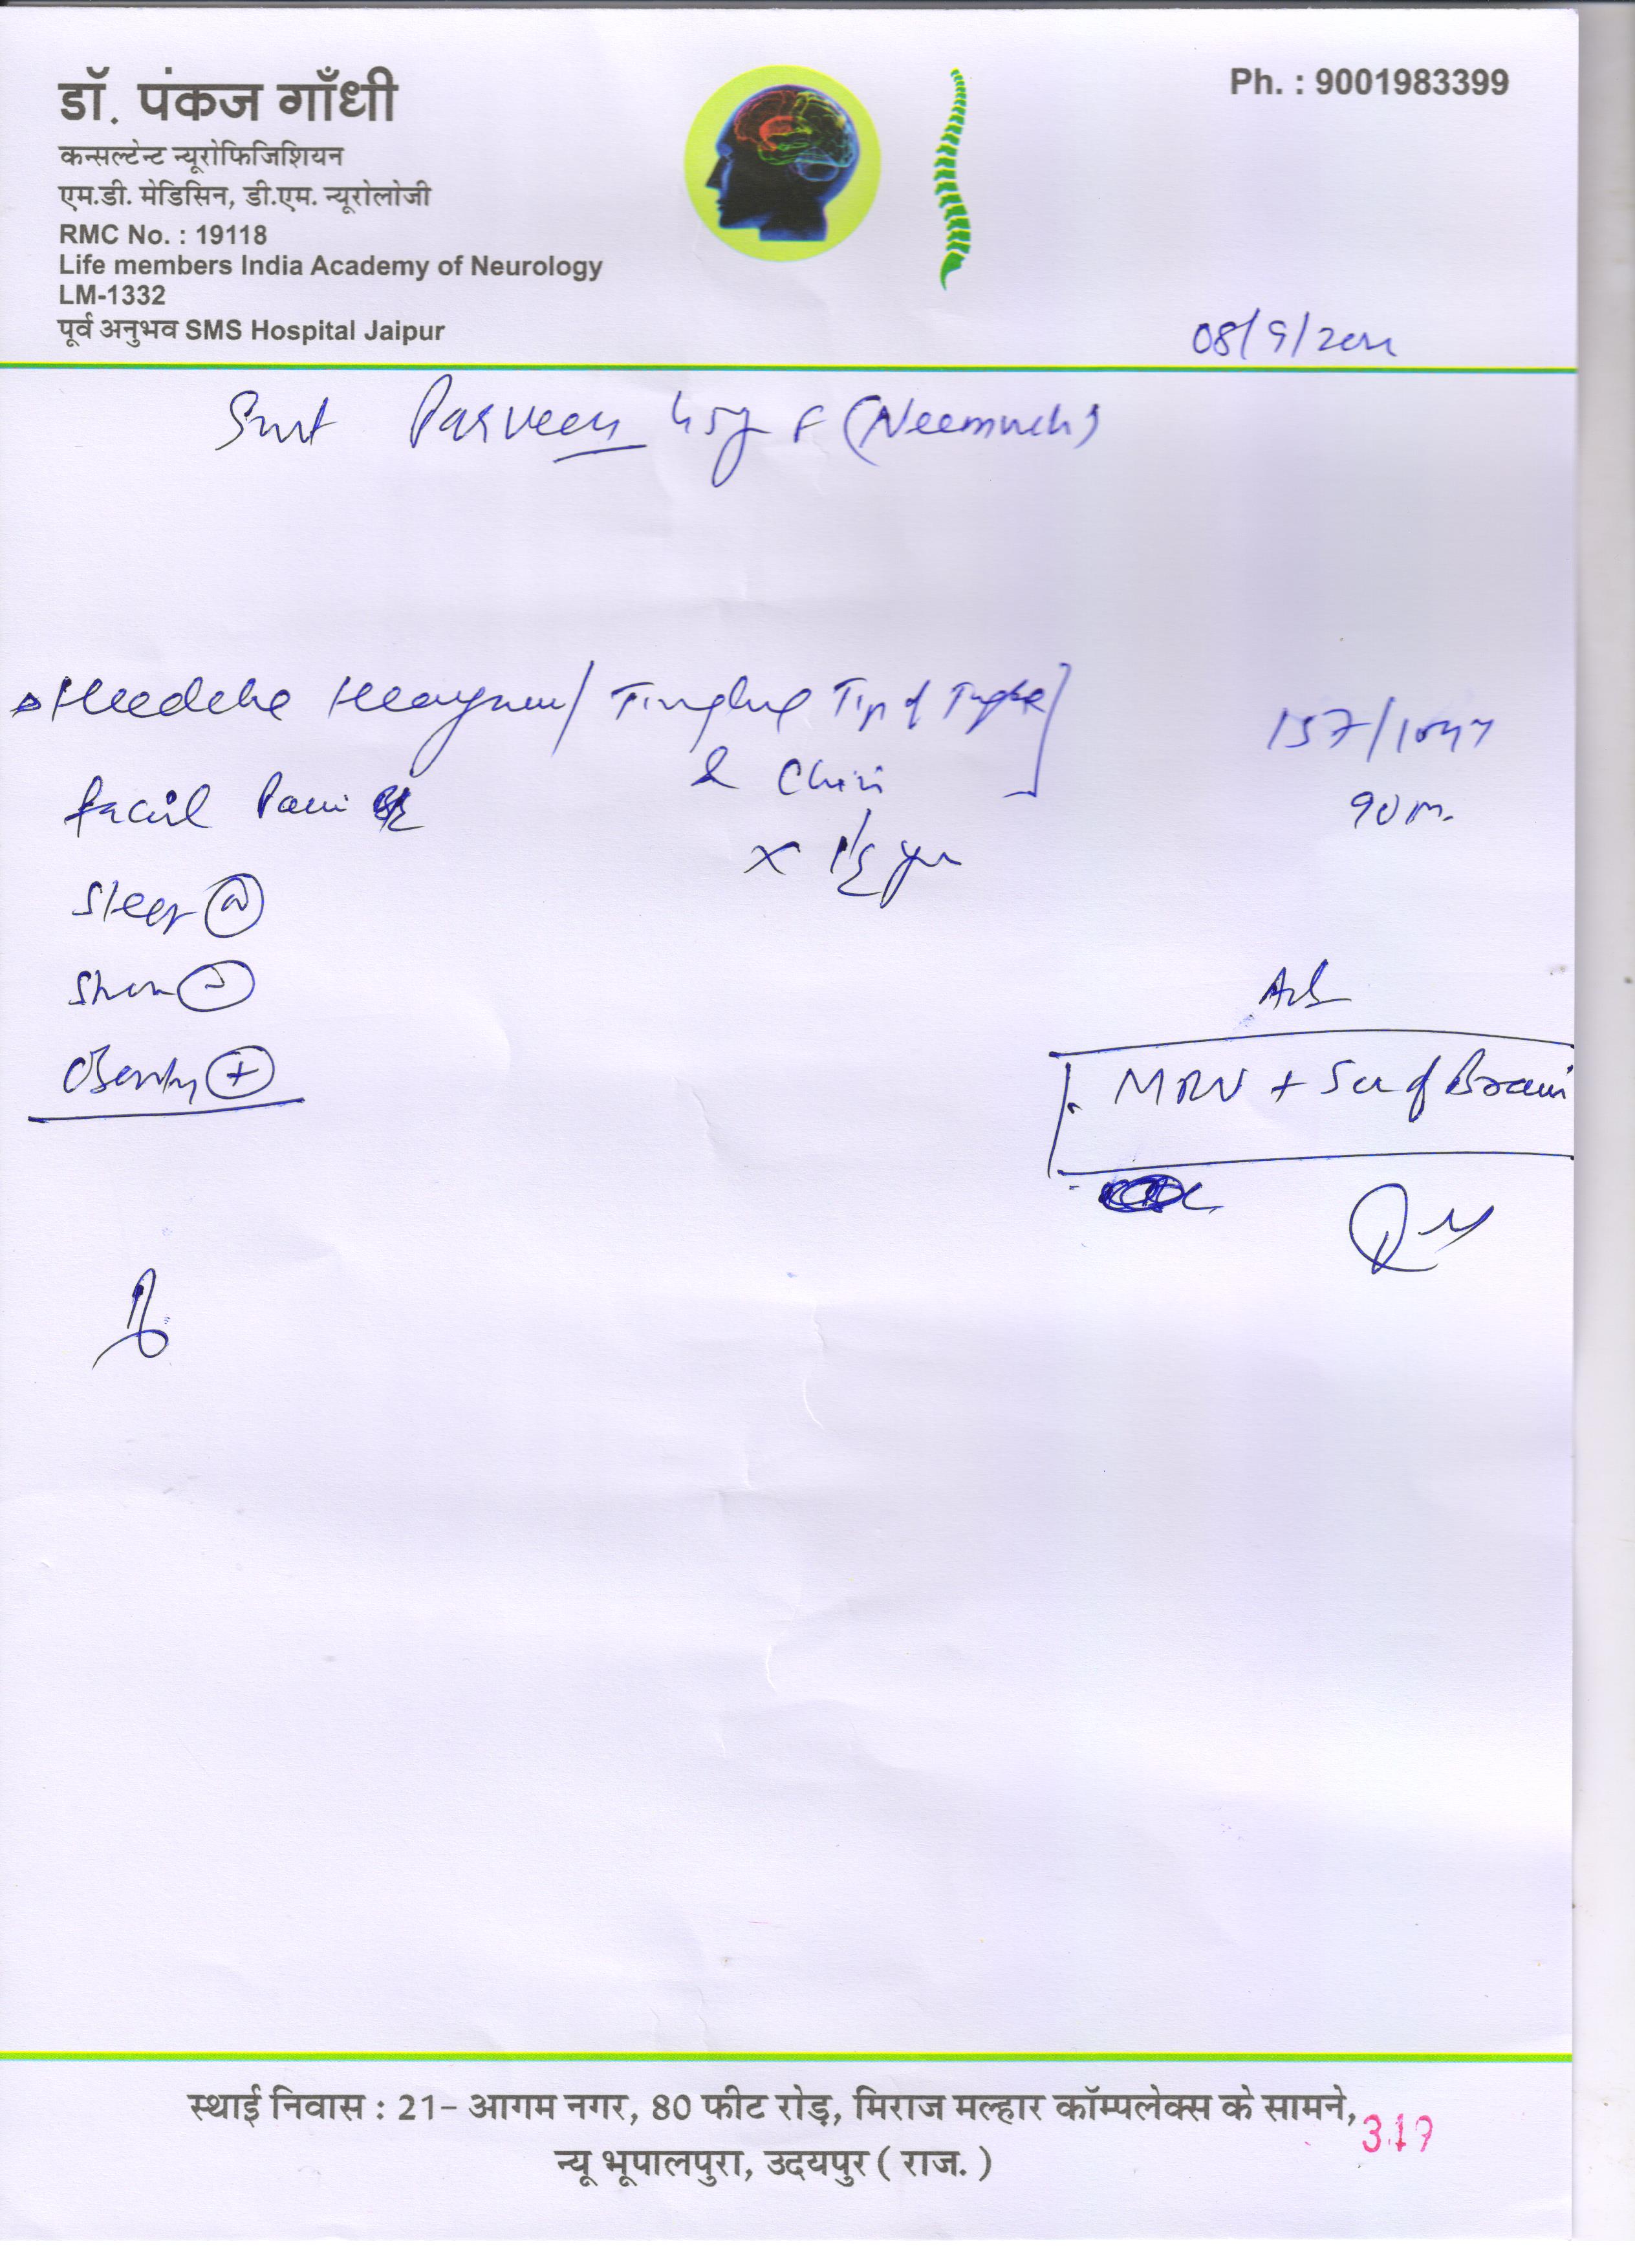 डॉ. पंकज गाँधी
Ph. : 9001983399
कन्सल्टेन्ट न्यूरोफिजिशियन
एम.डी. मेडिसिन, डी.एम. न्यूरोलोजी
RMC No. : 19118
Life members India Academy of Neurology
LM-1332
पूर्व अनुभव SMS Hospital Jaipur
08/9/202
Smt Parveen 45y F (Neemuch)
Tingling Tip of
& Chin
157/104
facial Pain
90 m.
x 1/2 yr
Sleep
Adv
Obesity +
MRV + of Brain
स्थाई निवास : 21- आगम नगर, 80 फीट रोड़, मिराज मल्हार कॉम्पलेक्स के सामने,
319
न्यू भूपालपुरा, उदयपुर ( राज. )